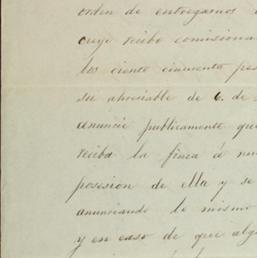 orden de entregarnos
creyé recibo comisiona
los ciento cincuenta pes
su apreciable de 6. de
anuncie publicamente que
reciba la finca á nu
posesion de ella y se
anunciando lo mismo
y en caso de que alg